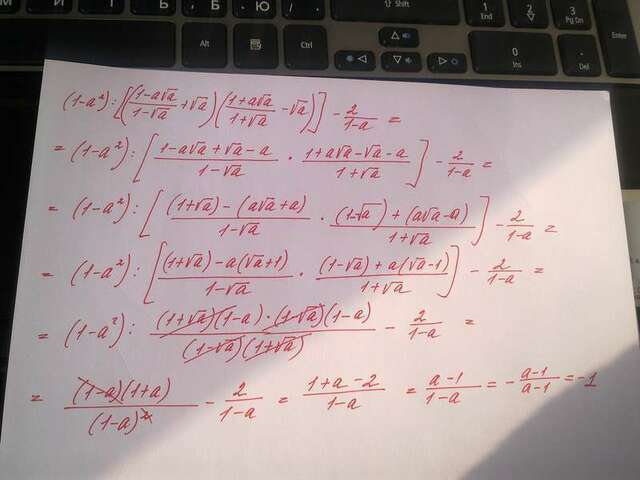 Alt Ctrl Shift 1 End 2 3 Pg Dn Enter
0 Ins . Del
(1-a²):[((1-a√a)/(1-√a)+√a)((1+a√a)/(1+√a)-√a)]-2/(1-a)=
=(1-a²):[(1-a√a+√a-a)/(1-√a)·(1+a√a-√a-a)/(1+√a)]-2/(1-a)=
=(1-a²):[((1+√a)-(a√a+a))/(1-√a)·((1-√a)+(a√a-a))/(1+√a)]-2/(1-a)=
=(1-a²):[((1+√a)-a(√a+1))/(1-√a)·((1-√a)+a(√a-1))/(1+√a)]-2/(1-a)=
=(1-a²):((1+√a)(1-a)·(1-√a)(1-a))/((1-√a)(1+√a))-2/(1-a)=
=((1-a)(1+a))/(1-a)²-2/(1-a)=(1+a-2)/(1-a)=(a-1)/(1-a)=-(a-1)/(a-1)=-1